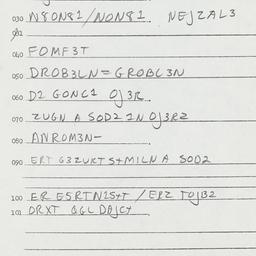 030 N8ON81/NON81 NEJZAL3
040 FOMF3T
050 DROB3LN=GROBL3N
060 D2 GONC1 OJ3R
070 ZUGN A SOD2 IN OJ3R2
080 ANROM3N-
090 ERT G3ZUKT S+MILN A SOD2
100 ER ESRTN2S+T / ER2 TOJB2
101 DRXT QGL DBJCT